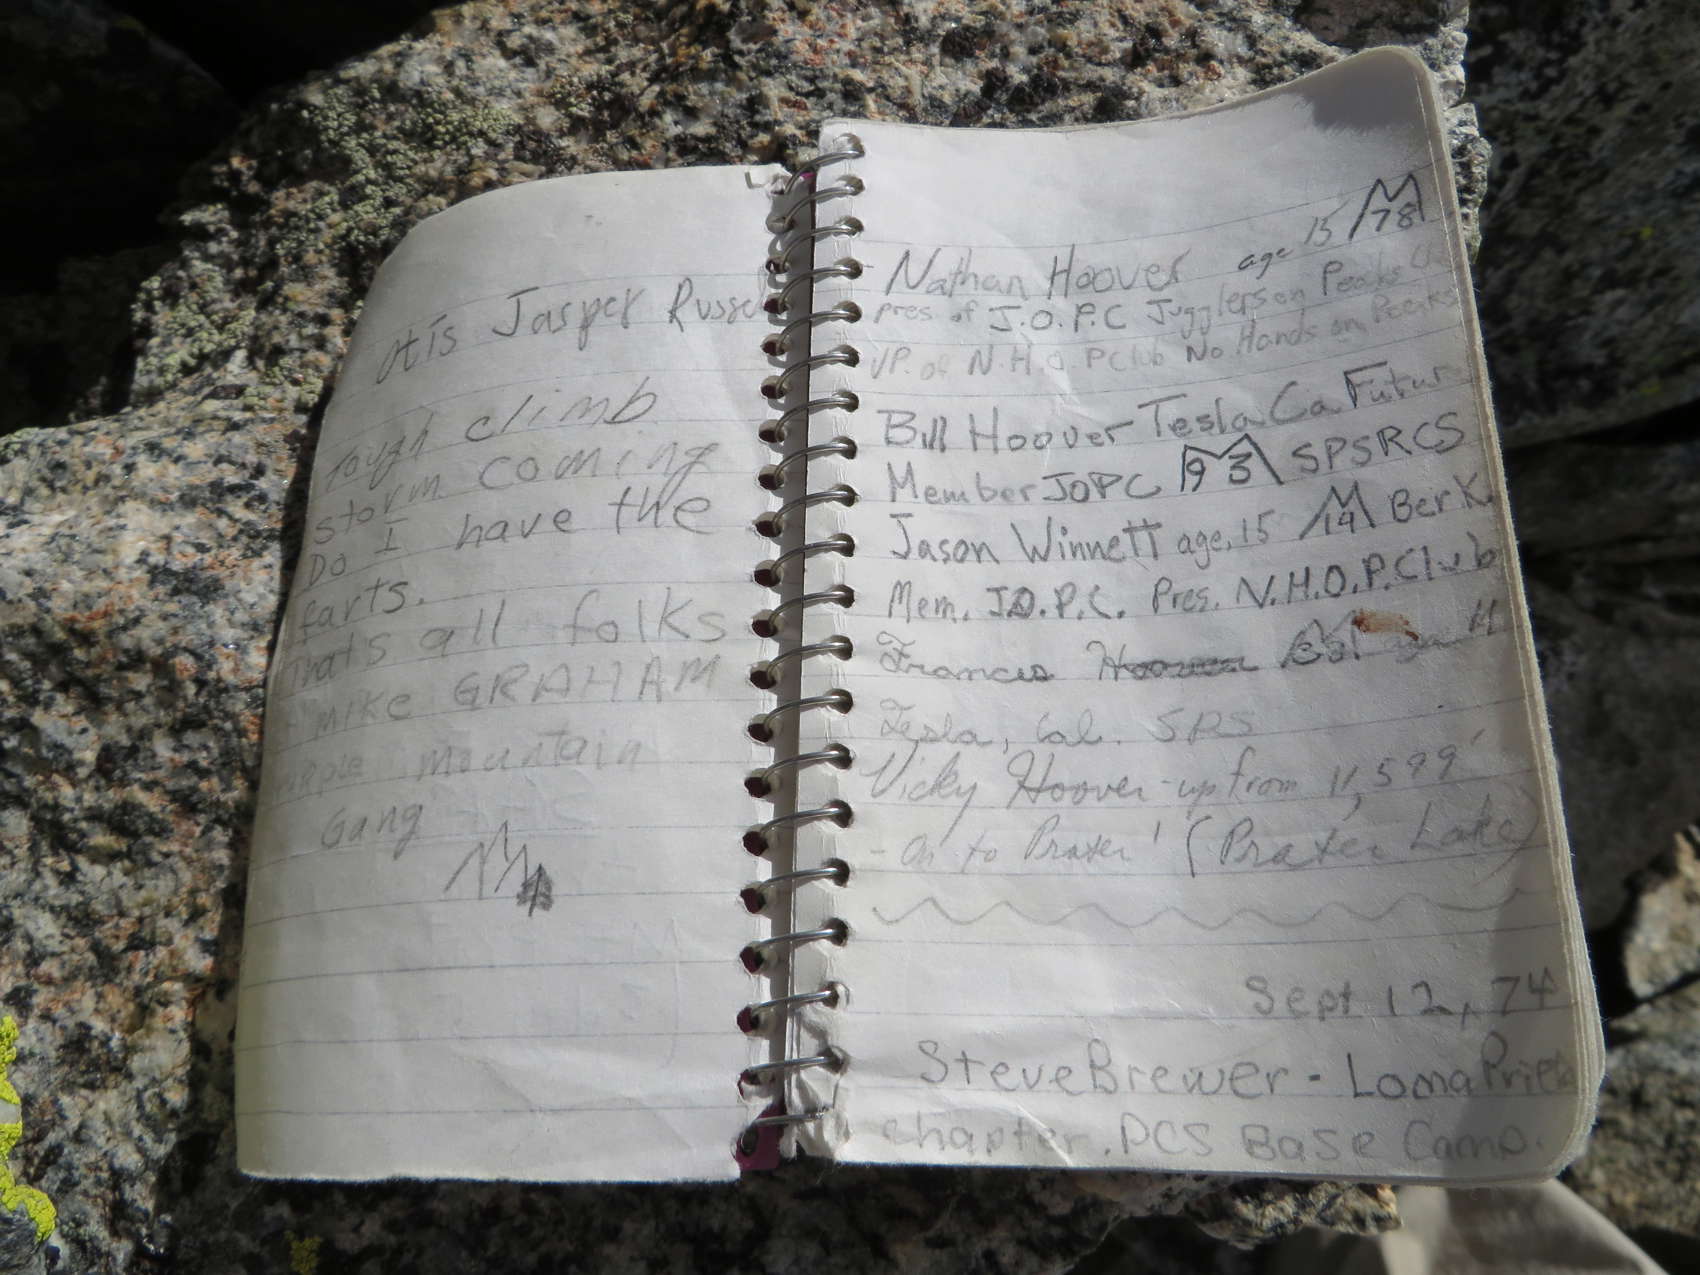 Otis Jasper Russel
Tough climb
storm coming
Do I have the
farts.
That's all folks
Mike GRAHAM
Purple mountain
Gang
Nathan Hoover age 15 78
pres. of J.O.P.C Jugglers on Peaks
V.P. of N.H.O.P Club No Hands on Peaks
Bill Hoover Tesla Ca. Futur
Member JOPC 93 SPS RCS
Jason Winnett age, 15 14 Berk.
Mem. J.O.P.C. Pres. N.H.O.P.Club
Frances
Tesla, Cal. SPS
Vicky Hoover - up from 11,599'
- On to Prater! (Prater Lake)
Sept 12, 74
Steve Brewer - Loma Prieta
chapter. PCS Base Camp.